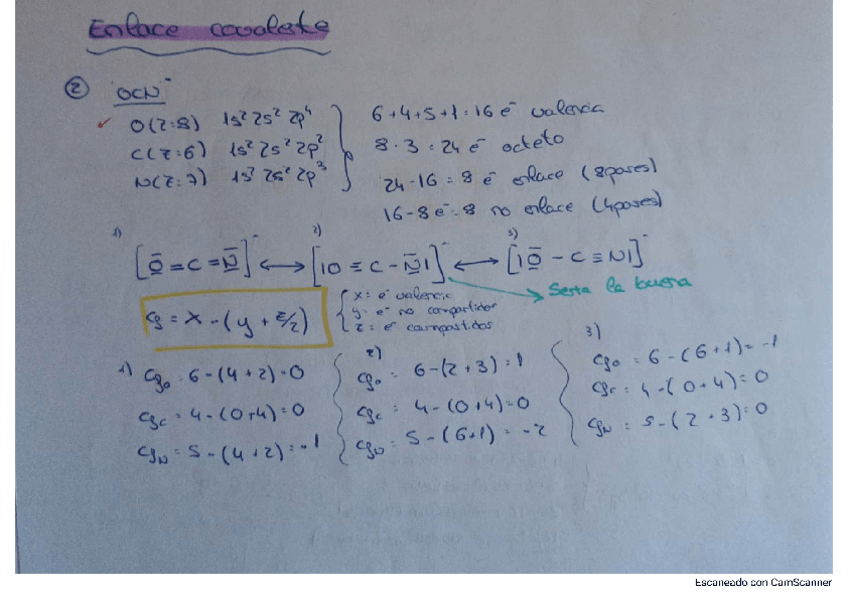 Enlace covalente
② OCN⁻
✓ O(Z=8) 1s² 2s² 2p⁴
C(Z=6) 1s² 2s² 2p²
N(Z=7) 1s² 2s² 2p³
6+4+5+1=16 e⁻ valencia
8·3=24 e⁻ octeto
24-16=8 e⁻ enlace (8pares)
16-8 e⁻=8 no enlace (4pares)
1) 2) 3)
[O̲̅=C=N̲̅]⁻ ⟷ [|O≡C-N̲̅|]⁻ ⟷ [|O̲̅-C≡N|]⁻
Sería la buena
Cg = x-(y+z/2)
x: e⁻ valencia
y: e⁻ no compartidos
z: e⁻ compartidos
1) Cg₀ = 6-(4+2)=0
Cgc = 4-(0+4)=0
CgN = 5-(4+2)=-1
2)
Cg₀ = 6-(2+3)=1
Cgc = 4-(0+4)=0
CgN = 5-(6+1)=-2
3)
Cg₀ = 6-(6+1)=-1
Cgc = 4-(0+4)=0
CgN = 5-(2+3)=0
Escaneado con CamScanner